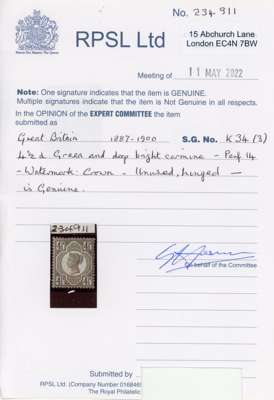 No. 234911
RPSL Ltd
15 Abchurch Lane
London EC4N 7BW
Meeting of 11 MAY 2022
Note: One signature indicates that the item is GENUINE.
Multiple signatures indicate that the item is Not Genuine in all respects.
In the OPINION of the EXPERT COMMITTEE the item
submitted as
Great Britain 1887-1900 S.G. No. K34(3)
4½d Green and deep bright carmine - Perf 14
- Watermark. Crown - Unused, hinged -
is Genuine.
234911
on behalf of the Committee
Submitted by
RPSL Ltd. (Company Number
The Royal Philatelic